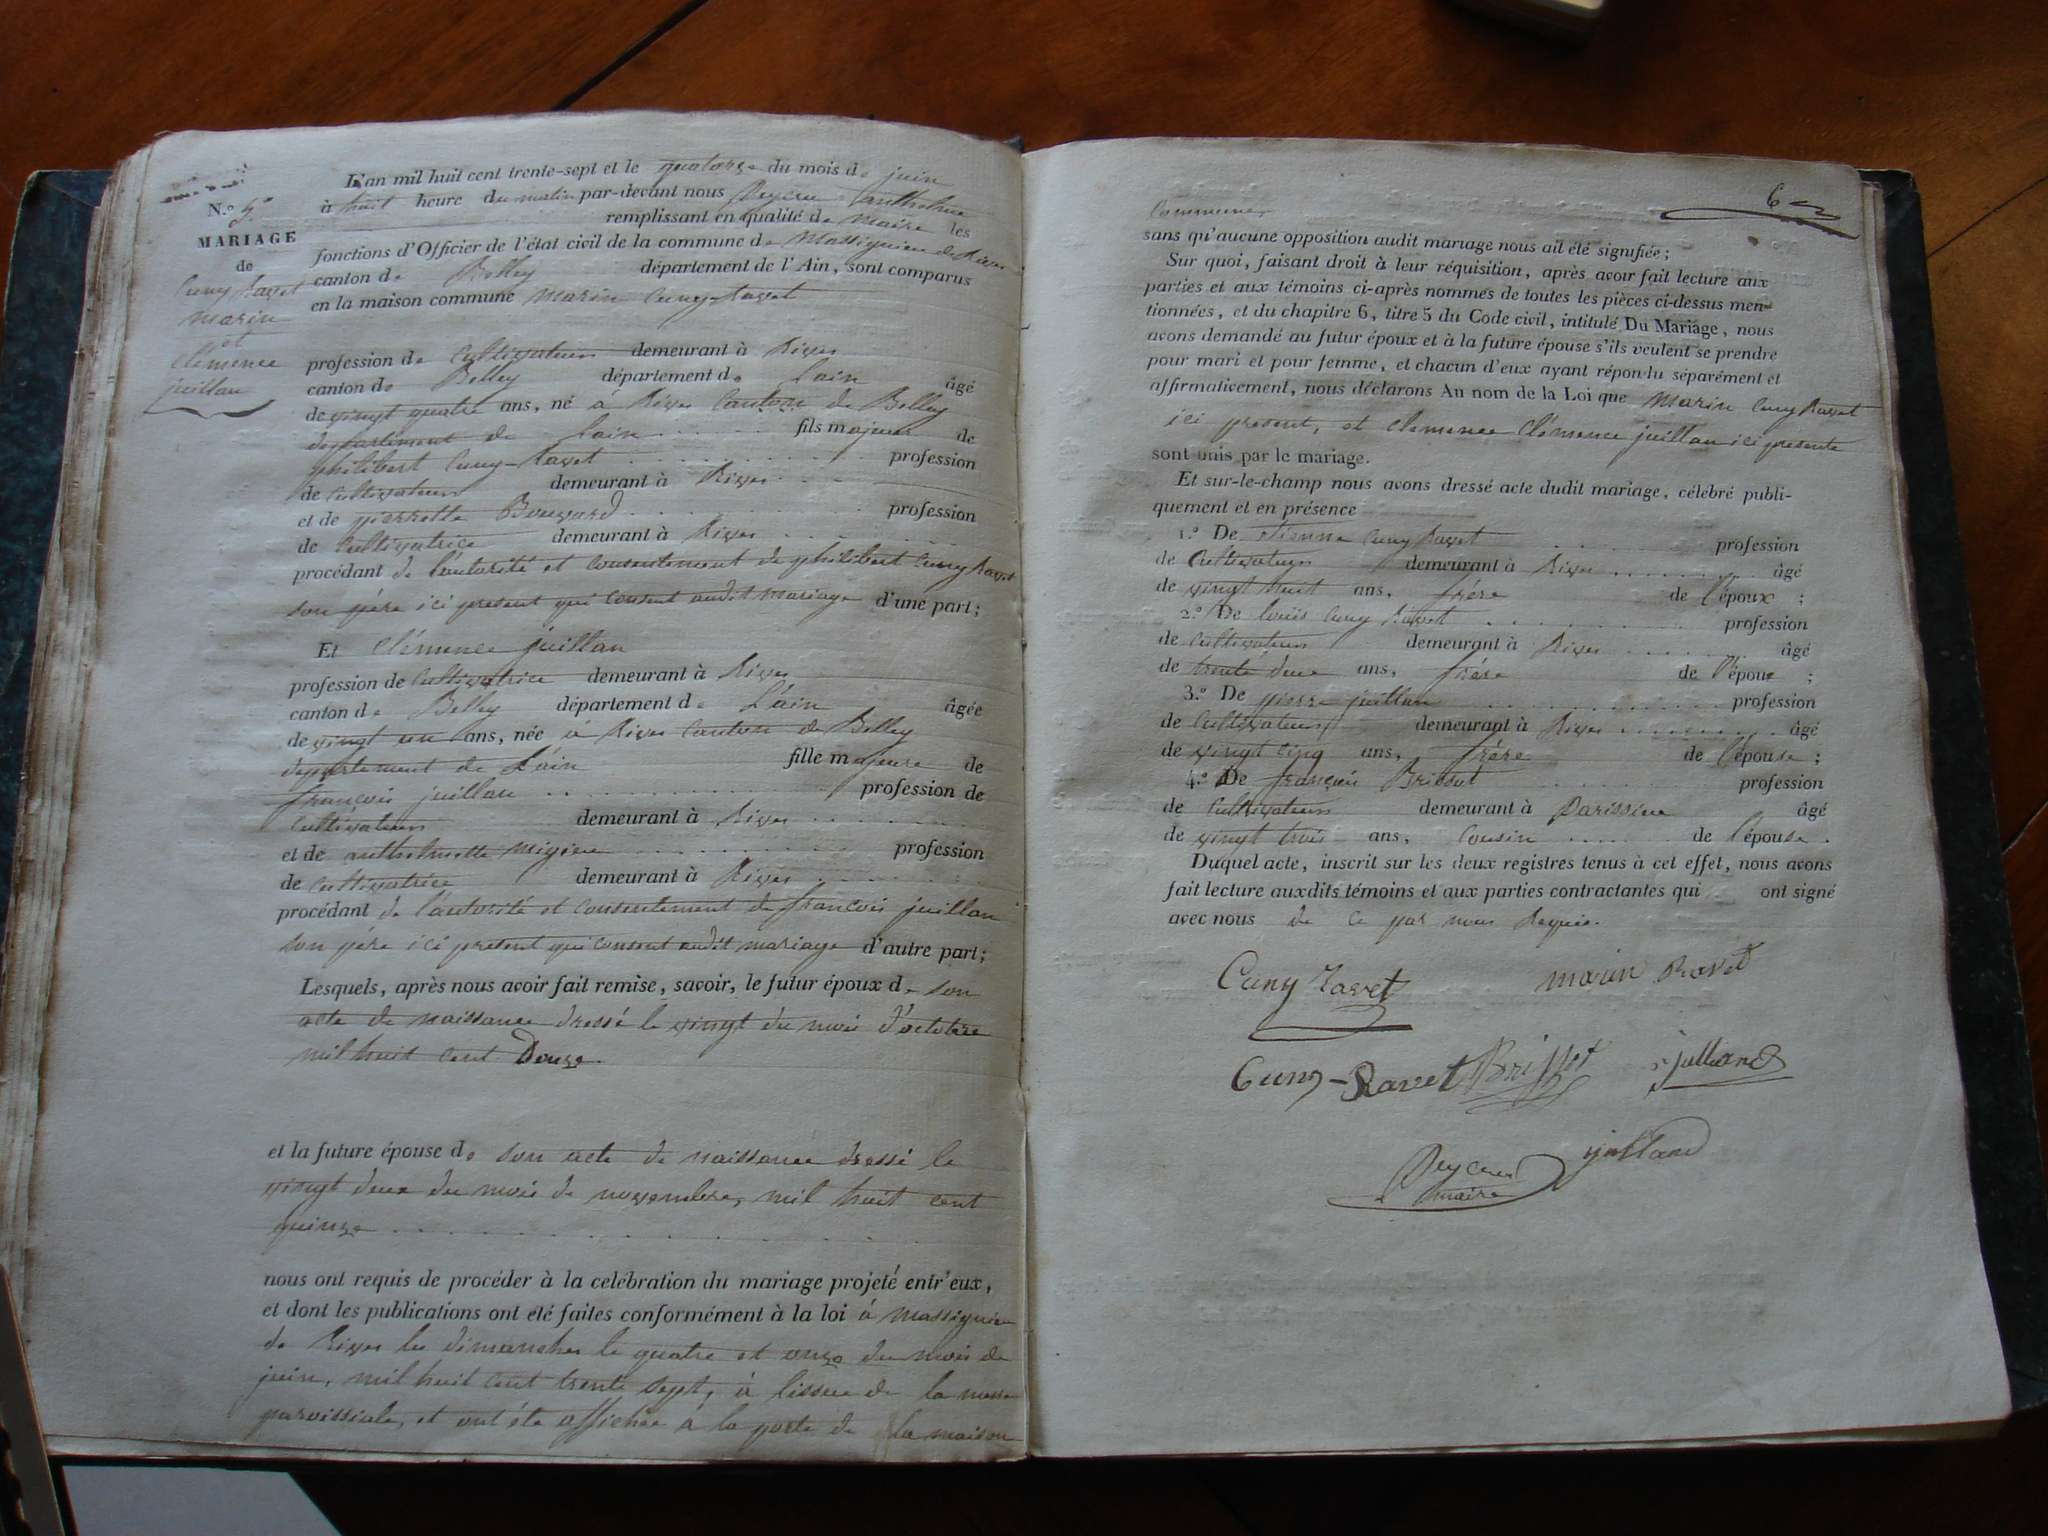 N.o 5.
MARIAGE
de
Cuny Ravet
marin
et
Clémence
juillan
L'an mil huil cent trente-sept et le quatorze du mois de juin
à huit heure du matin par-devant nous Peycru Anthelme
remplissant en qualité de maire les
fonctions d'Officier de l'état civil de la commune de Massignieu de Rives
canton de Belley département de l'Ain, sont comparus
en la maison commune marin Cuny-Ravet
profession de Cultivateur demeurant à Rives
canton de Belley département de Lain âgé
de vingt quatre ans, né à Rives Canton de Belley
département de Lain fils majeur de
philibert Cuny-Ravet profession
de Cultivateur demeurant à Rives
et de pierrette Bouvard profession
de Cultivatrice demeurant à Rives
procédant de l'autorité et consentement de philibert Cuny Ravet
son père ici present qui consent audit mariage d'une part;
Et Clémence juillan
profession de Cultivatrice demeurant à Rives
canton de Belley département de L'ain âgée
de vingt un ans, née à Rives Canton de Belley
département de L'ain fille majeure de
françois juillan profession de
Cultivateur demeurant à Rives
et de anthelmette Migieu profession
de Cultivatrice demeurant à Rives
procédant de l'autorité et consentement de françois juillan
son père ici present qui consent audit mariage d'autre part;
Lesquels, après nous avoir fait remise, savoir, le futur époux de son
acte de naissance dressé le vingt du mois d'octobre
mil huit cent Douze.
et la future épouse de son acte de naissance dressé le
vingt deux du mois de novembre, mil huit cent
quinze
nous ont requis de procéder à la celébration du mariage projeté entr'eux,
et dont les publications ont eté faites conformément à la loi à massignieu
de Rives les dimanches le quatre et onze du mois de
juin, mil huit cent trente sept, à lissue de la messe
paroissiale, et ont été affichée à la porte de la maison
6
Commune,
sans qu'aucune opposition audit mariage nous ait été signifiée;
Sur quoi, faisant droit à leur réquisition, après avoir fait lecture aux
parties et aux témoins ci-après nommés de toutes les pièces ci-dessus men-
tionnées, et du chapitre 6, titre 5 du Code civil, intitulé Du Mariage, nous
avons demandé au futur époux et à la future épouse s'ils veulent se prendre
pour mari et pour femme, et chacun d'eux ayant répondu séparément et
affirmativement, nous déclarons Au nom de la Loi que Marin Cuny Ravet
ici present, et clemence Clémence juillan ici presente
sont unis par le mariage.
Et sur-le-champ nous avons dressé acte dudit mariage, célébré publi-
quement et en présence
1.o De Etienne Cuny Ravet profession
de Cultivateur demeurant à Rives âgé
de vingt huit ans, frére de l'époux ;
2.o De louis Cuny Ravet profession
de Cultivateur demeurant à Rives âgé
de trente deux ans, frére de l'époux ;
3.o De pierre juillan profession
de Cultivateur demeurant à Rives âgé
de vingt cinq ans, frére de l'épouse ;
4.o De françois Brissot profession
de Cultivateur demeurant à Parissieu âgé
de vingt trois ans, Cousin de l'épouse .
Duquel acte, inscrit sur les deux registres tenus à cet effet, nous avons
fait lecture auxdits témoins et aux parties contractantes qui ont signé
avec nous de ce par nous Requis.
Cuny Ravet marin Ravet
Cuny-Ravet Brissot juilland
Peycru juilland
maire